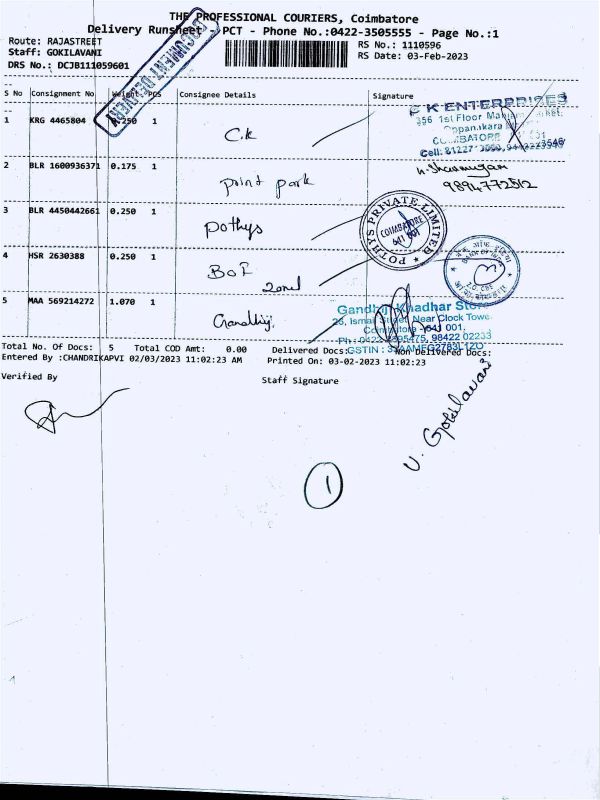 THE PROFESSIONAL COURIERS, Coimbatore
Delivery Runsheet - PCT - Phone No.:0422-3505555 - Page No.:1
Route: RAJASTREET
Staff: GOKILAVANI
DRS No.: DCJB111059601
RS No.: 1110596
RS Date: 03-Feb-2023
DOCUMENT DELIVERY
S No Consignment No Weight PCS Consignee Details Signature
1 KRG 4465804 0.250 1 C.K
C K ENTERPRISES
356 1st Floor
Oppanakara
COIMBATORE
Cell: 81227
2 BLR 1600936371 0.175 1 point park
9894772512
3 BLR 4450442661 0.250 1 Pothys
POTHYS PRIVATE LIMITED
COIMBATORE
641 001
4 HSR 2630388 0.250 1 BOI
Zonal
BANK OF INDIA
5 MAA 569214272 1.070 1 Gandhiji
Gandhiji Khadhar Store
Street, Near Clock Tower
Coimbatore - 641 001.
98422 02233
Total No. Of Docs: 5 Total COD Amt: 0.00 Delivered Docs: Non Delivered Docs:
Entered By :CHANDRIKAPVI 02/03/2023 11:02:23 AM Printed On: 03-02-2023 11:02:23
Verified By Staff Signature
V. Gokilavani
1